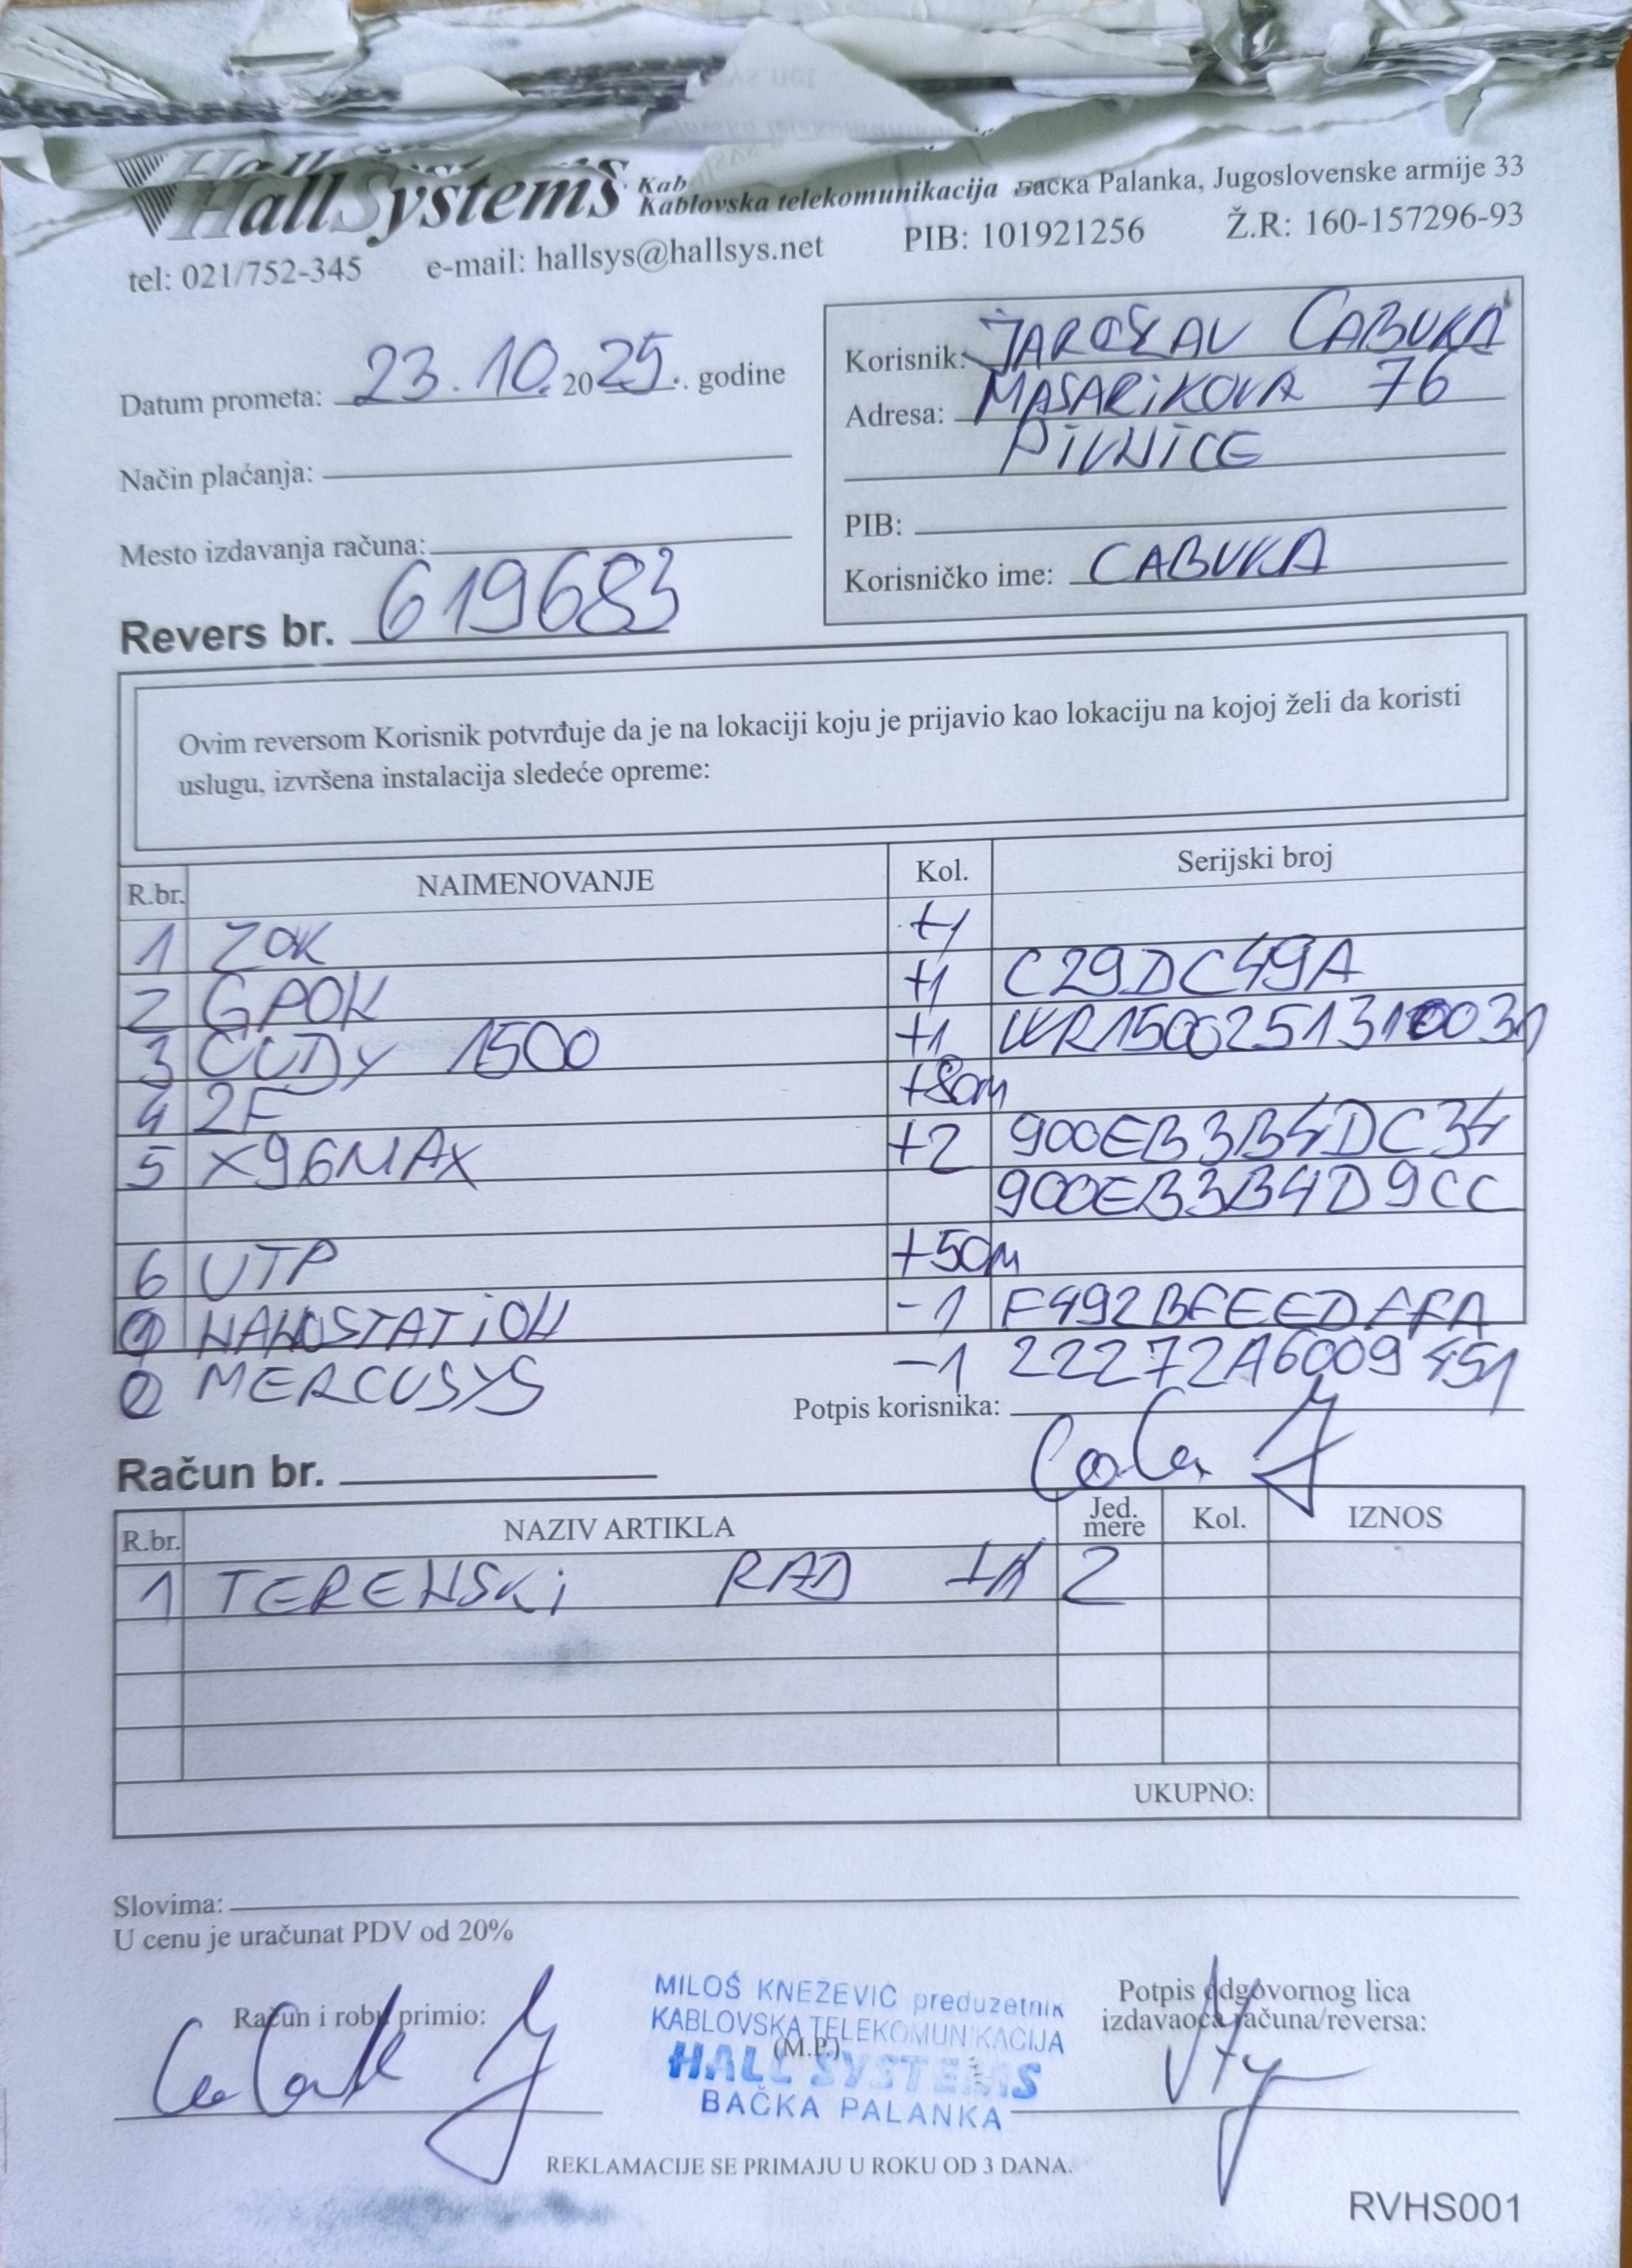 HallSystemS Kablovska telekomunikacija Bačka Palanka, Jugoslovenske armije 33
tel: 021/752-345 e-mail: hallsys@hallsys.net PIB: 101921256 Ž.R: 160-157296-93
Datum prometa: 23.10.2025. godine
Način plaćanja:
Mesto izdavanja računa:
Revers br. 619683
Korisnik: JAROSLAV CABUKA
Adresa: MASARiKOVA 76
PiVNiCE
PIB:
Korisničko ime: CABUKA
Ovim reversom Korisnik potvrđuje da je na lokaciji koju je prijavio kao lokaciju na kojoj želi da koristi
uslugu, izvršena instalacija sledeće opreme:
R.br. NAIMENOVANJE Kol. Serijski broj
1 ZOK +1
2 GPON +1 C29DC49A
3 CUDY 1500 +1 WR1500251310031
4 2F +80m
5 X96MAX +2 900EB3B4DC34
900EB3B4D9CC
6 UTP +50m
1 NANOSTATiON -1 F492BFEEDAFA
2 MERCUSYS -1 22272A6009451
Potpis korisnika:
Račun br.
R.br. NAZIV ARTIKLA Jed. mere Kol. IZNOS
1 TERENSKi RAD 2
UKUPNO:
Slovima:
U cenu je uračunat PDV od 20%
Račun i robu primio:
MILOŠ KNEŽEVIĆ preduzetnik
KABLOVSKA TELEKOMUNIKACIJA
(M.P.)
HALL SYSTEMS
BAČKA PALANKA
Potpis odgovornog lica
izdavaoca računa/reversa:
REKLAMACIJE SE PRIMAJU U ROKU OD 3 DANA.
RVHS001